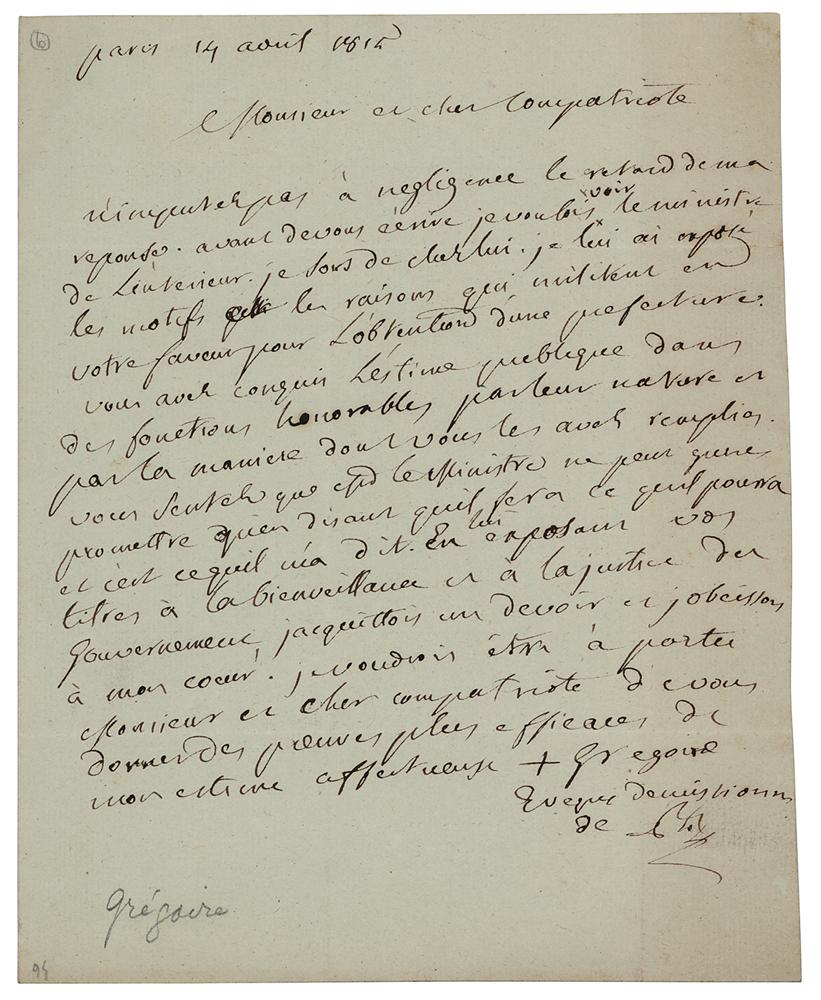 6
paris 14 avril 1815
Monsieur et cher Compatriote
n'imputez pas à negligence le retard de ma
reponse. avant de vous écrire je voulois voir le ministre
de L'interieur. je sors de chez lui. je lui ai exposé
les motifs et les raisons qui militent en
votre faveur pour L'obtention d'une prefecture.
vous avez conquis L'estime publique dans
des fonctions honorables par leur nature et
par la maniere dont vous les avez remplies.
vous sentez que le Ministre ne peut guere
promettre qu'en disant qu'il fera ce qu'il pourra
et c'est ce qu'il m'a dit. En lui exposant vos
titres à la bienveillance et à la justice du
Gouvernement, j'acquittois un devoir et j'obeissois
à mon coeur. je voudrois être à portée
Monsieur et cher compatriote de vous
donner des preuves plus efficaces de
mon estime affectueuse + Gregoire
Eveque demissionn
de
Grégoire
95